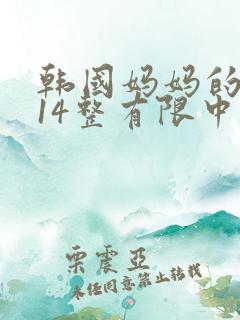 韩国妈妈的
14整有限中
栗震亚
未经同意禁止转载